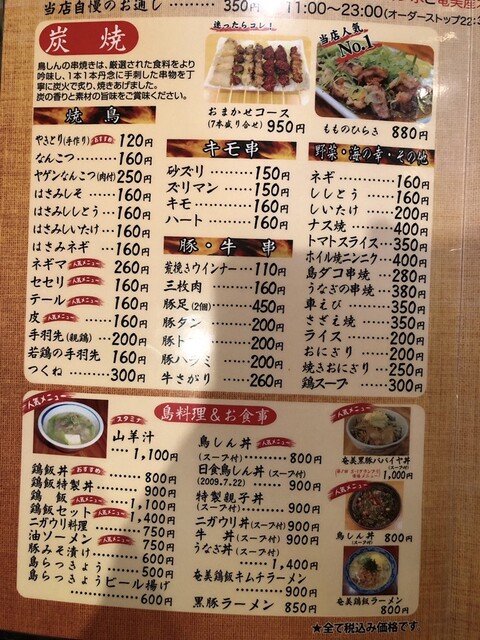 当店自慢のお通し ……… 350円
11:00～23:00(オーダーストップ22:
炭焼
鳥しんの串焼きは、厳選された食料をより
吟味し、1本1本丹念に手刺した串物を丁
寧に炭火で炙り、焼きあげました。
炭の香りと素材の旨味をご賞味ください。
迷ったらコレ!
おまかせコース
(7本盛り合せ) 950円
当店人気
No.1
もものひらき 880円
焼鳥
やきとり(手作り) おすすめ 120円
なんこつ 160円
ヤゲンなんこつ(肉付) 250円
はさみしそ 160円
はさみししとう 160円
はさみしいたけ 160円
はさみネギ 160円
ネギマ 人気メニュー 260円
セセリ 人気メニュー 160円
テール 人気メニュー 160円
皮 人気メニュー 160円
手羽先(親鶏) 200円
若鶏の手羽先 160円
つくね 300円
キモ串
砂ズリ 150円
ズリマン 150円
キモ 160円
ハート 160円
豚・牛 串
荒挽きウインナー 110円
三枚肉 160円
豚足(2個) 450円
豚タン 200円
豚トロ 200円
豚ハラミ 200円
牛さがり 260円
野菜・海の幸・その他
ネギ 160円
ししとう 160円
しいたけ 200円
ナス焼 400円
トマトスライス 350円
ホイル焼ニンニク 400円
島ダコ串焼 280円
うなぎの串焼 380円
車えび 350円
さざえ焼 350円
ライス 200円
おにぎり 200円
焼きおにぎり 250円
鶏スープ 350円
島料理&お食事
人気メニュー
スタミナ
山羊汁
1,100円
鶏飯丼 おすすめ 800円
鶏飯特製丼 900円
鶏飯 人気メニュー 1,100円
鶏飯セット 人気メニュー 1,400円
ニガウリ料理 750円
油ソーメン 人気メニュー 750円
豚みそ漬け 600円
島らっきょう 500円
島らっきょうビール揚げ
600円
鳥しん丼 人気メニュー
(スープ付) 800円
日食鳥しん丼(スープ付)
(2009.7.22) 900円
特製親子丼
(スープ付) 900円
ニガウリ丼(スープ付) 900円
牛丼(スープ付) 900円
うなぎ丼(スープ付)
1,400円
奄美鶏飯キムチラーメン
900円
黒豚ラーメン 850円
人気メニュー
奄美黒豚パパイヤ丼
(スープ付) 1,000円
人気メニュー
鳥しん丼
(スープ付) 800円
奄美鶏飯ラーメン
800円
★全て税込み価格です